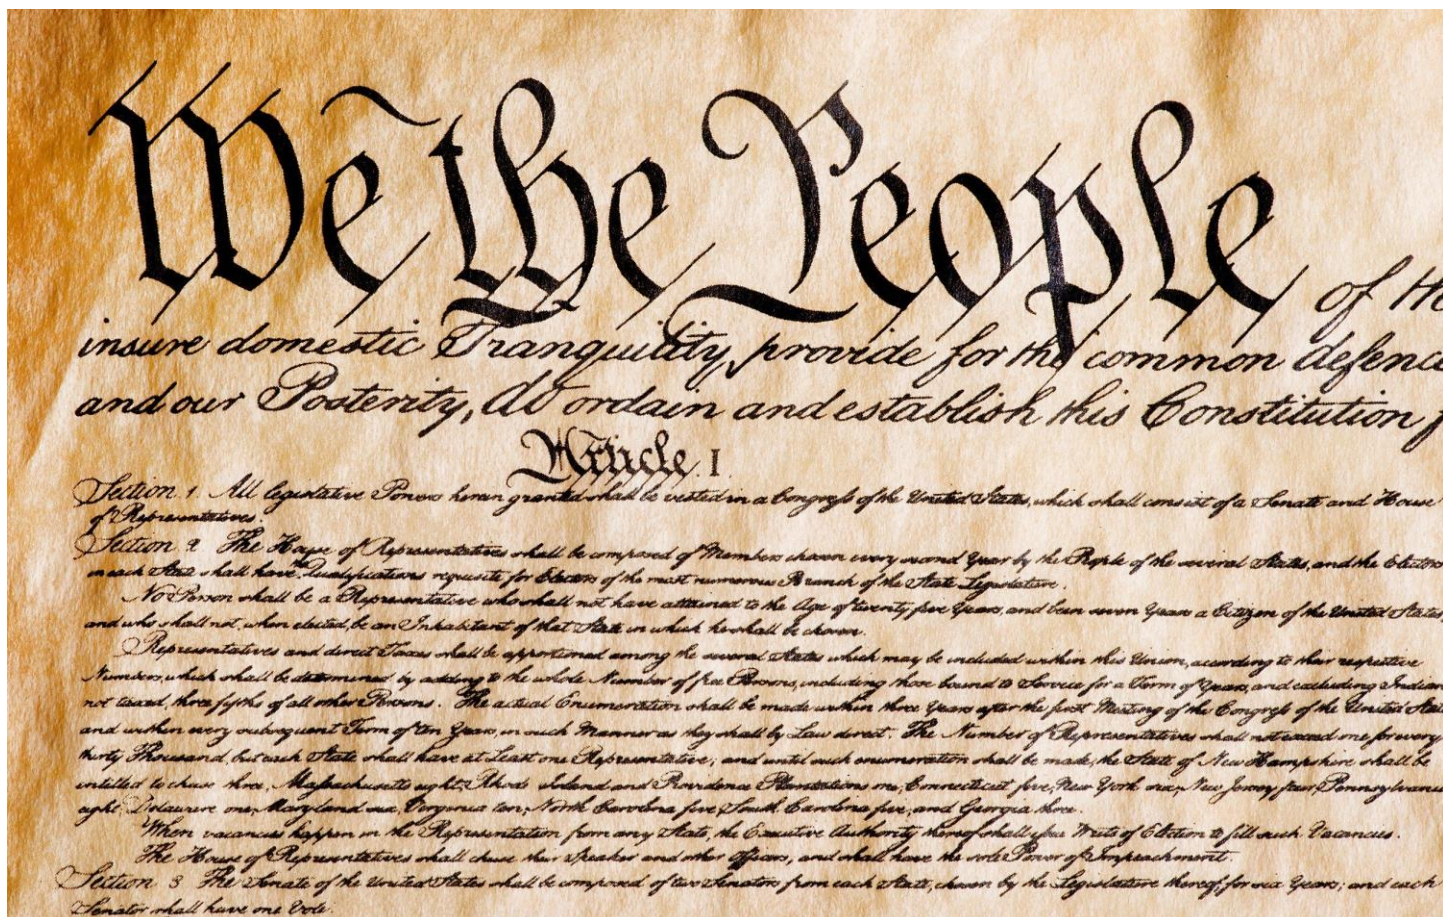 We the People of the
insure domestic Tranquility, provide for the common defence
and our Posterity, do ordain and establish this Constitution f
Article. I.
Section. 1. All legislative Powers herein granted shall be vested in a Congress of the United States, which shall consist of a Senate and House
of Representatives.
Section. 2. The House of Representatives shall be composed of Members chosen every second Year by the People of the several States, and the Electors
in each State shall have the Qualifications requisite for Electors of the most numerous Branch of the State Legislature.
No Person shall be a Representative who shall not have attained to the Age of twenty five Years, and been seven Years a Citizen of the United States,
and who shall not, when elected, be an Inhabitant of that State in which he shall be chosen.
Representatives and direct Taxes shall be apportioned among the several States which may be included within this Union, according to their respective
Numbers, which shall be determined by adding to the whole Number of free Persons, including those bound to Service for a Term of Years, and excluding Indians
not taxed, three fifths of all other Persons. The actual Enumeration shall be made within three Years after the first Meeting of the Congress of the United States,
and within every subsequent Term of ten Years, in such Manner as they shall by Law direct. The Number of Representatives shall not exceed one for every
thirty Thousand, but each State shall have at Least one Representative; and until such enumeration shall be made, the State of New Hampshire shall be
entitled to chuse three, Massachusetts eight, Rhode Island and Providence Plantations one, Connecticut five, New York six, New Jersey four, Pennsylvania
eight, Delaware one, Maryland six, Virginia ten, North Carolina five, South Carolina five, and Georgia three.
When vacancies happen in the Representation from any State, the Executive Authority thereof shall issue Writs of Election to fill such Vacancies.
The House of Representatives shall chuse their Speaker and other Officers; and shall have the sole Power of Impeachment.
Section. 3. The Senate of the United States shall be composed of two Senators from each State, chosen by the Legislature thereof, for six Years; and each
Senator shall have one Vote.